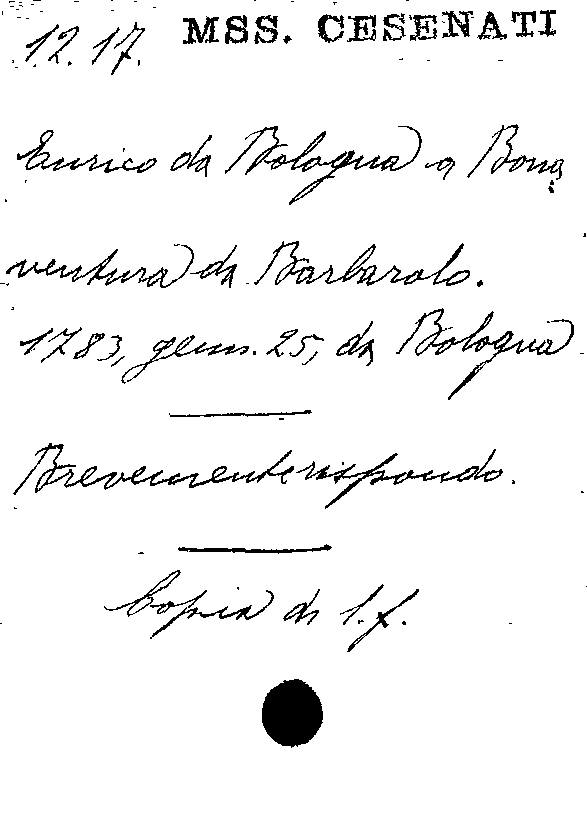 12.17. MSS. CESENATI
Enrico da Bologna a Bona
ventura da Barbarolo.
1783, genn. 25, da Bologna
Brevemente rispondo.
Copia di 1. f.